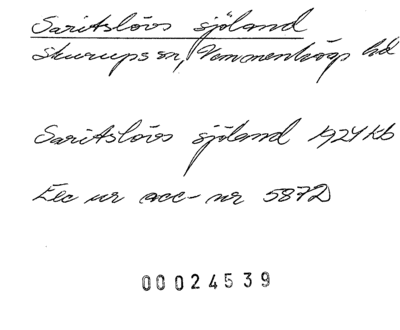 Saritslövs sjöland
Skurups sn, Vemmenhögs hd
Saritslövs sjöland 1924 Kb
Exc ur acc-nr 5872
00024539